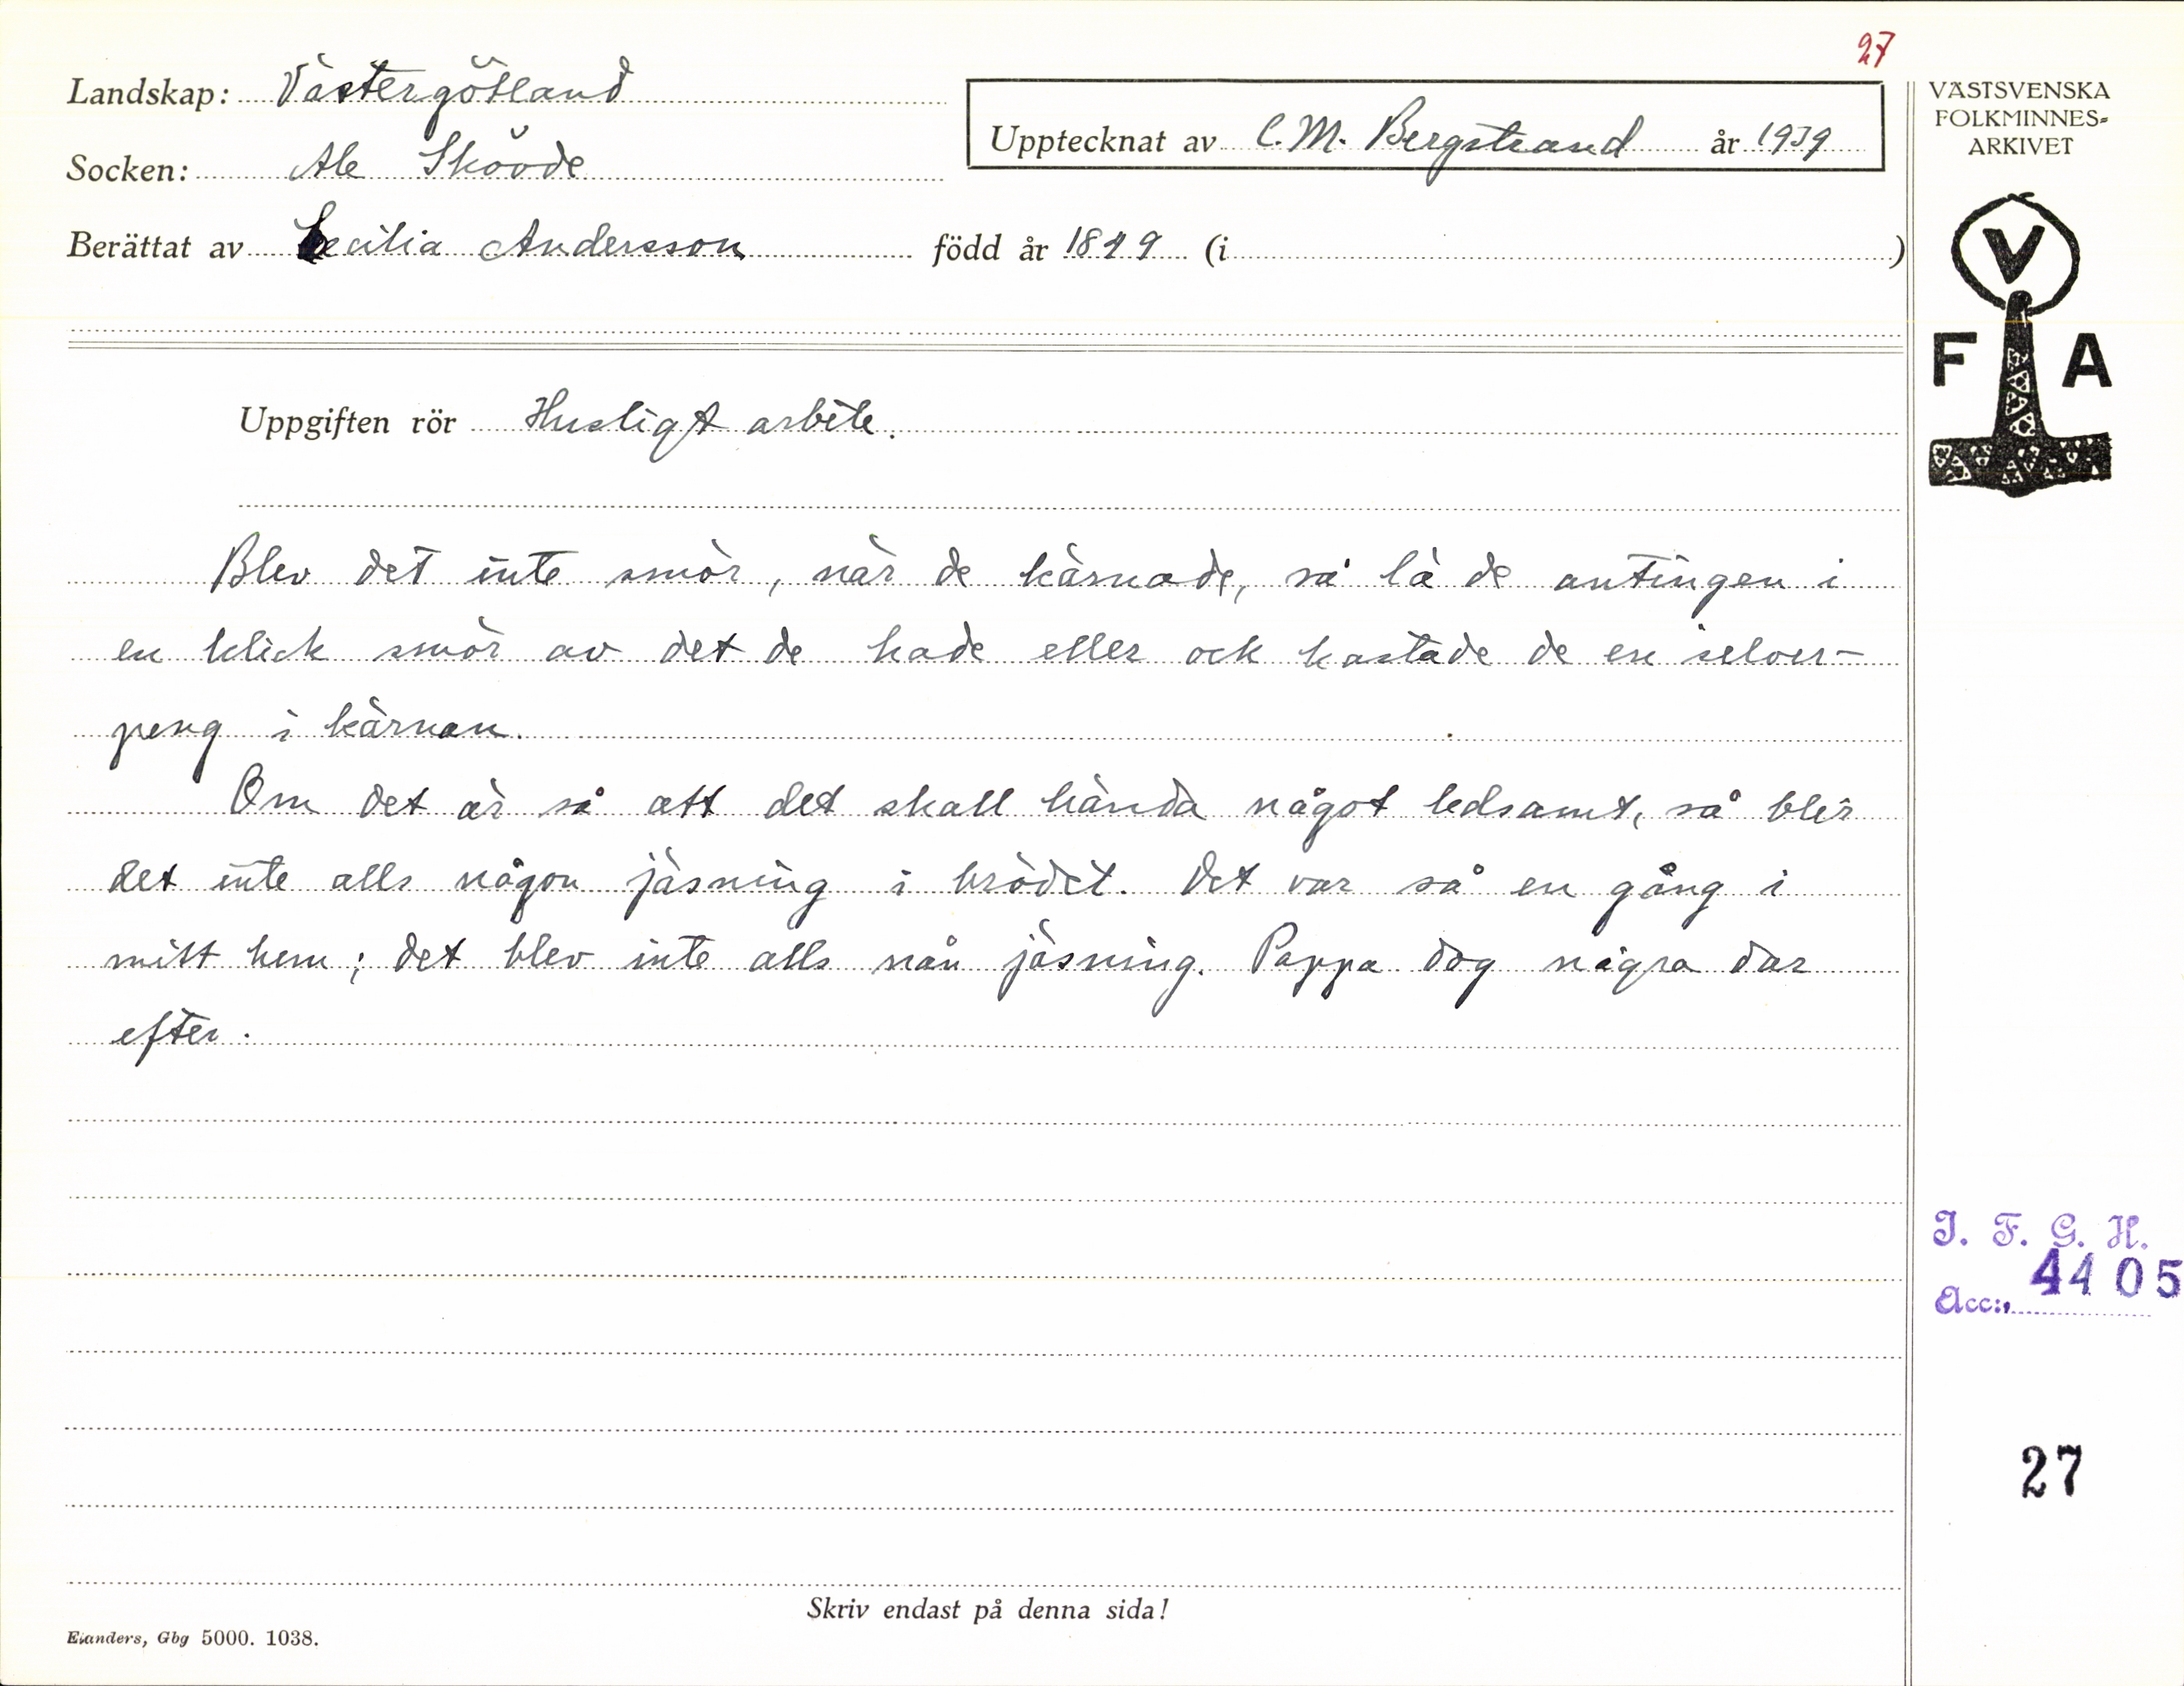 27
Landskap: Västergötland
Socken: Ale Skövde
Berättat av Cecilia Andersson född år 1849 (i )
Upptecknat av C. M. Bergstrand år 1939
VÄSTSVENSKA
FOLKMINNES-
ARKIVET
V
F A
Uppgiften rör Husligt arbete.
Blev det inte smör, när de kärnade, så là de antingen i
en klick smör av det de hade eller ock kastade de en selver-
peng i kärnan.
Om det är så att det skall hända något ledsamt, så blir
det inte alls någon jäsning i brödet. Det var så en gång i
mitt hem; det blev inte alls nån jäsning. Pappa dog några dar
efter.
I. F. G. H.
Acc:. 4405
27
Skriv endast på denna sida!
Elanders, Gbg 5000. 1038.